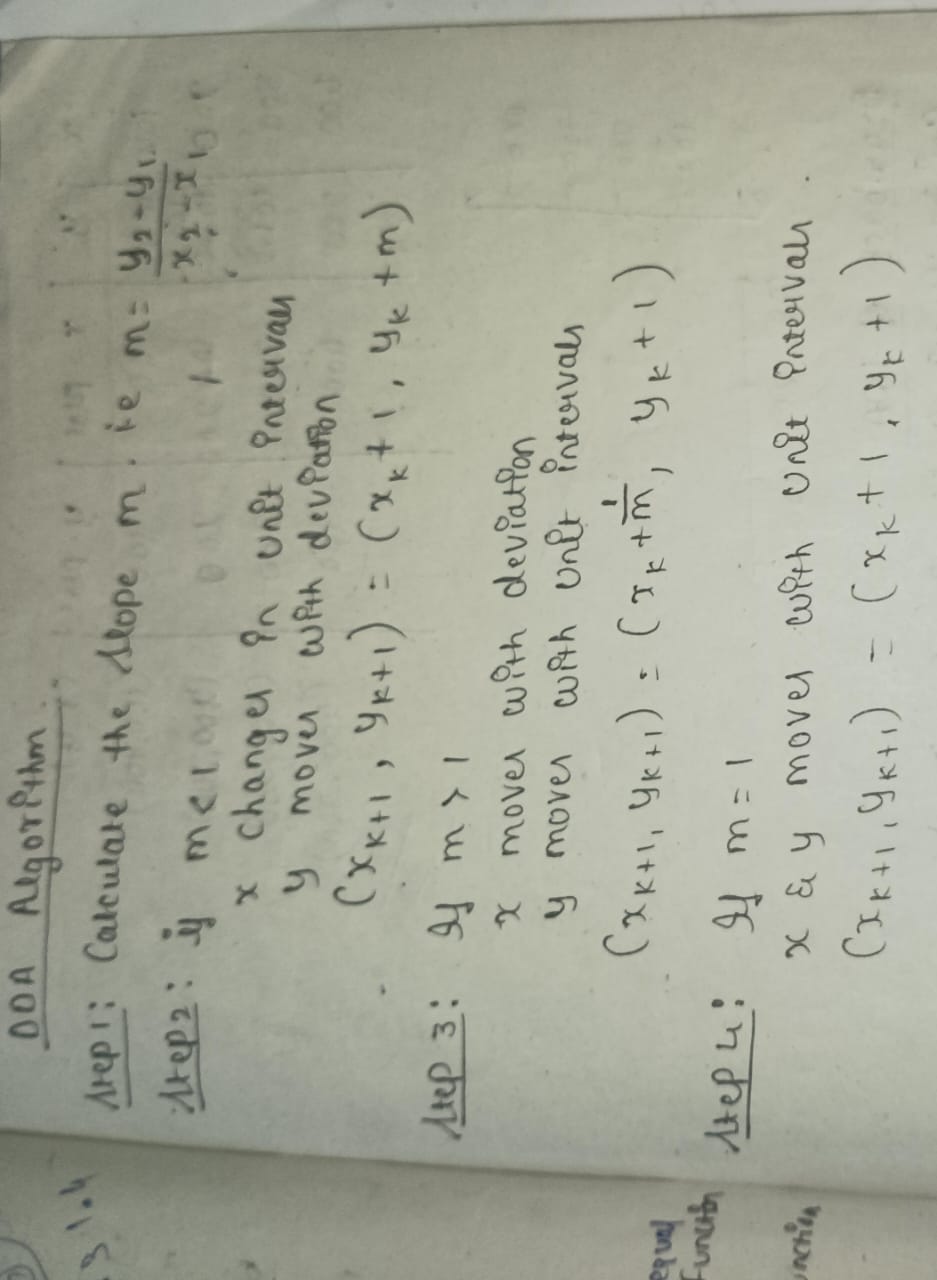 DDA Algorithm.
3 1.4
Step 1: Calculate the slope m. ie m = y₂-y₁ / x₂-x₁
Step 2: if m < 1
x changes in unit intervals
y moves with deviation
(xₖ₊₁, yₖ₊₁) = (xₖ+1, yₖ+m)
Step 3: If m > 1
x moves with deviation
y moves with unit intervals
(xₖ₊₁, yₖ₊₁) = (xₖ+1/m, yₖ+1)
equal
Function
Step 4: If m = 1
x & y moves with unit intervals.
unction
(xₖ₊₁, yₖ₊₁) = (xₖ+1, yₖ+1)